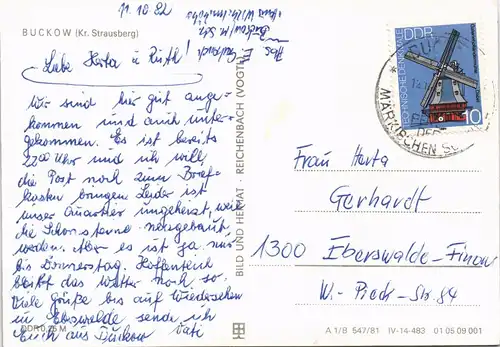 11.10.82
BUCKOW (Kr. Strausberg)
Abs. E.
Buckow M. Sch.
Liebe Herta u Ruth!
Wir sind hier gut ange-
kommen und auch unter-
gekommen. Es ist bereits
22 00 Uhr und ich will
die Post noch zum Brief-
kasten bringen. Leider ist
unser Quartier ungeheizt, weil
die Schornsteine neugebaut
werden. Aber es ist ja nur
bis Donnerstag. Hoffentlich
bleibt das Wetter noch so.
Viele Grüße bis auf Wiedersehen
in Ebswalde sende ich
Euch aus Buckow Vati
DDR 0,25 M
BILD UND HEIMAT · REICHENBACH (VOGTL)
TECHNISCHE DENKMALE
DDR
10
BUCKOW
PERLE
DER
MÄRKISCHEN SCHWEIZ
Frau Herta
Gerhardt
1300 Eberswalde-Finow
W.-Pieck-Str. 84
A 1/B 547/81 IV-14-483 01 05 09 001